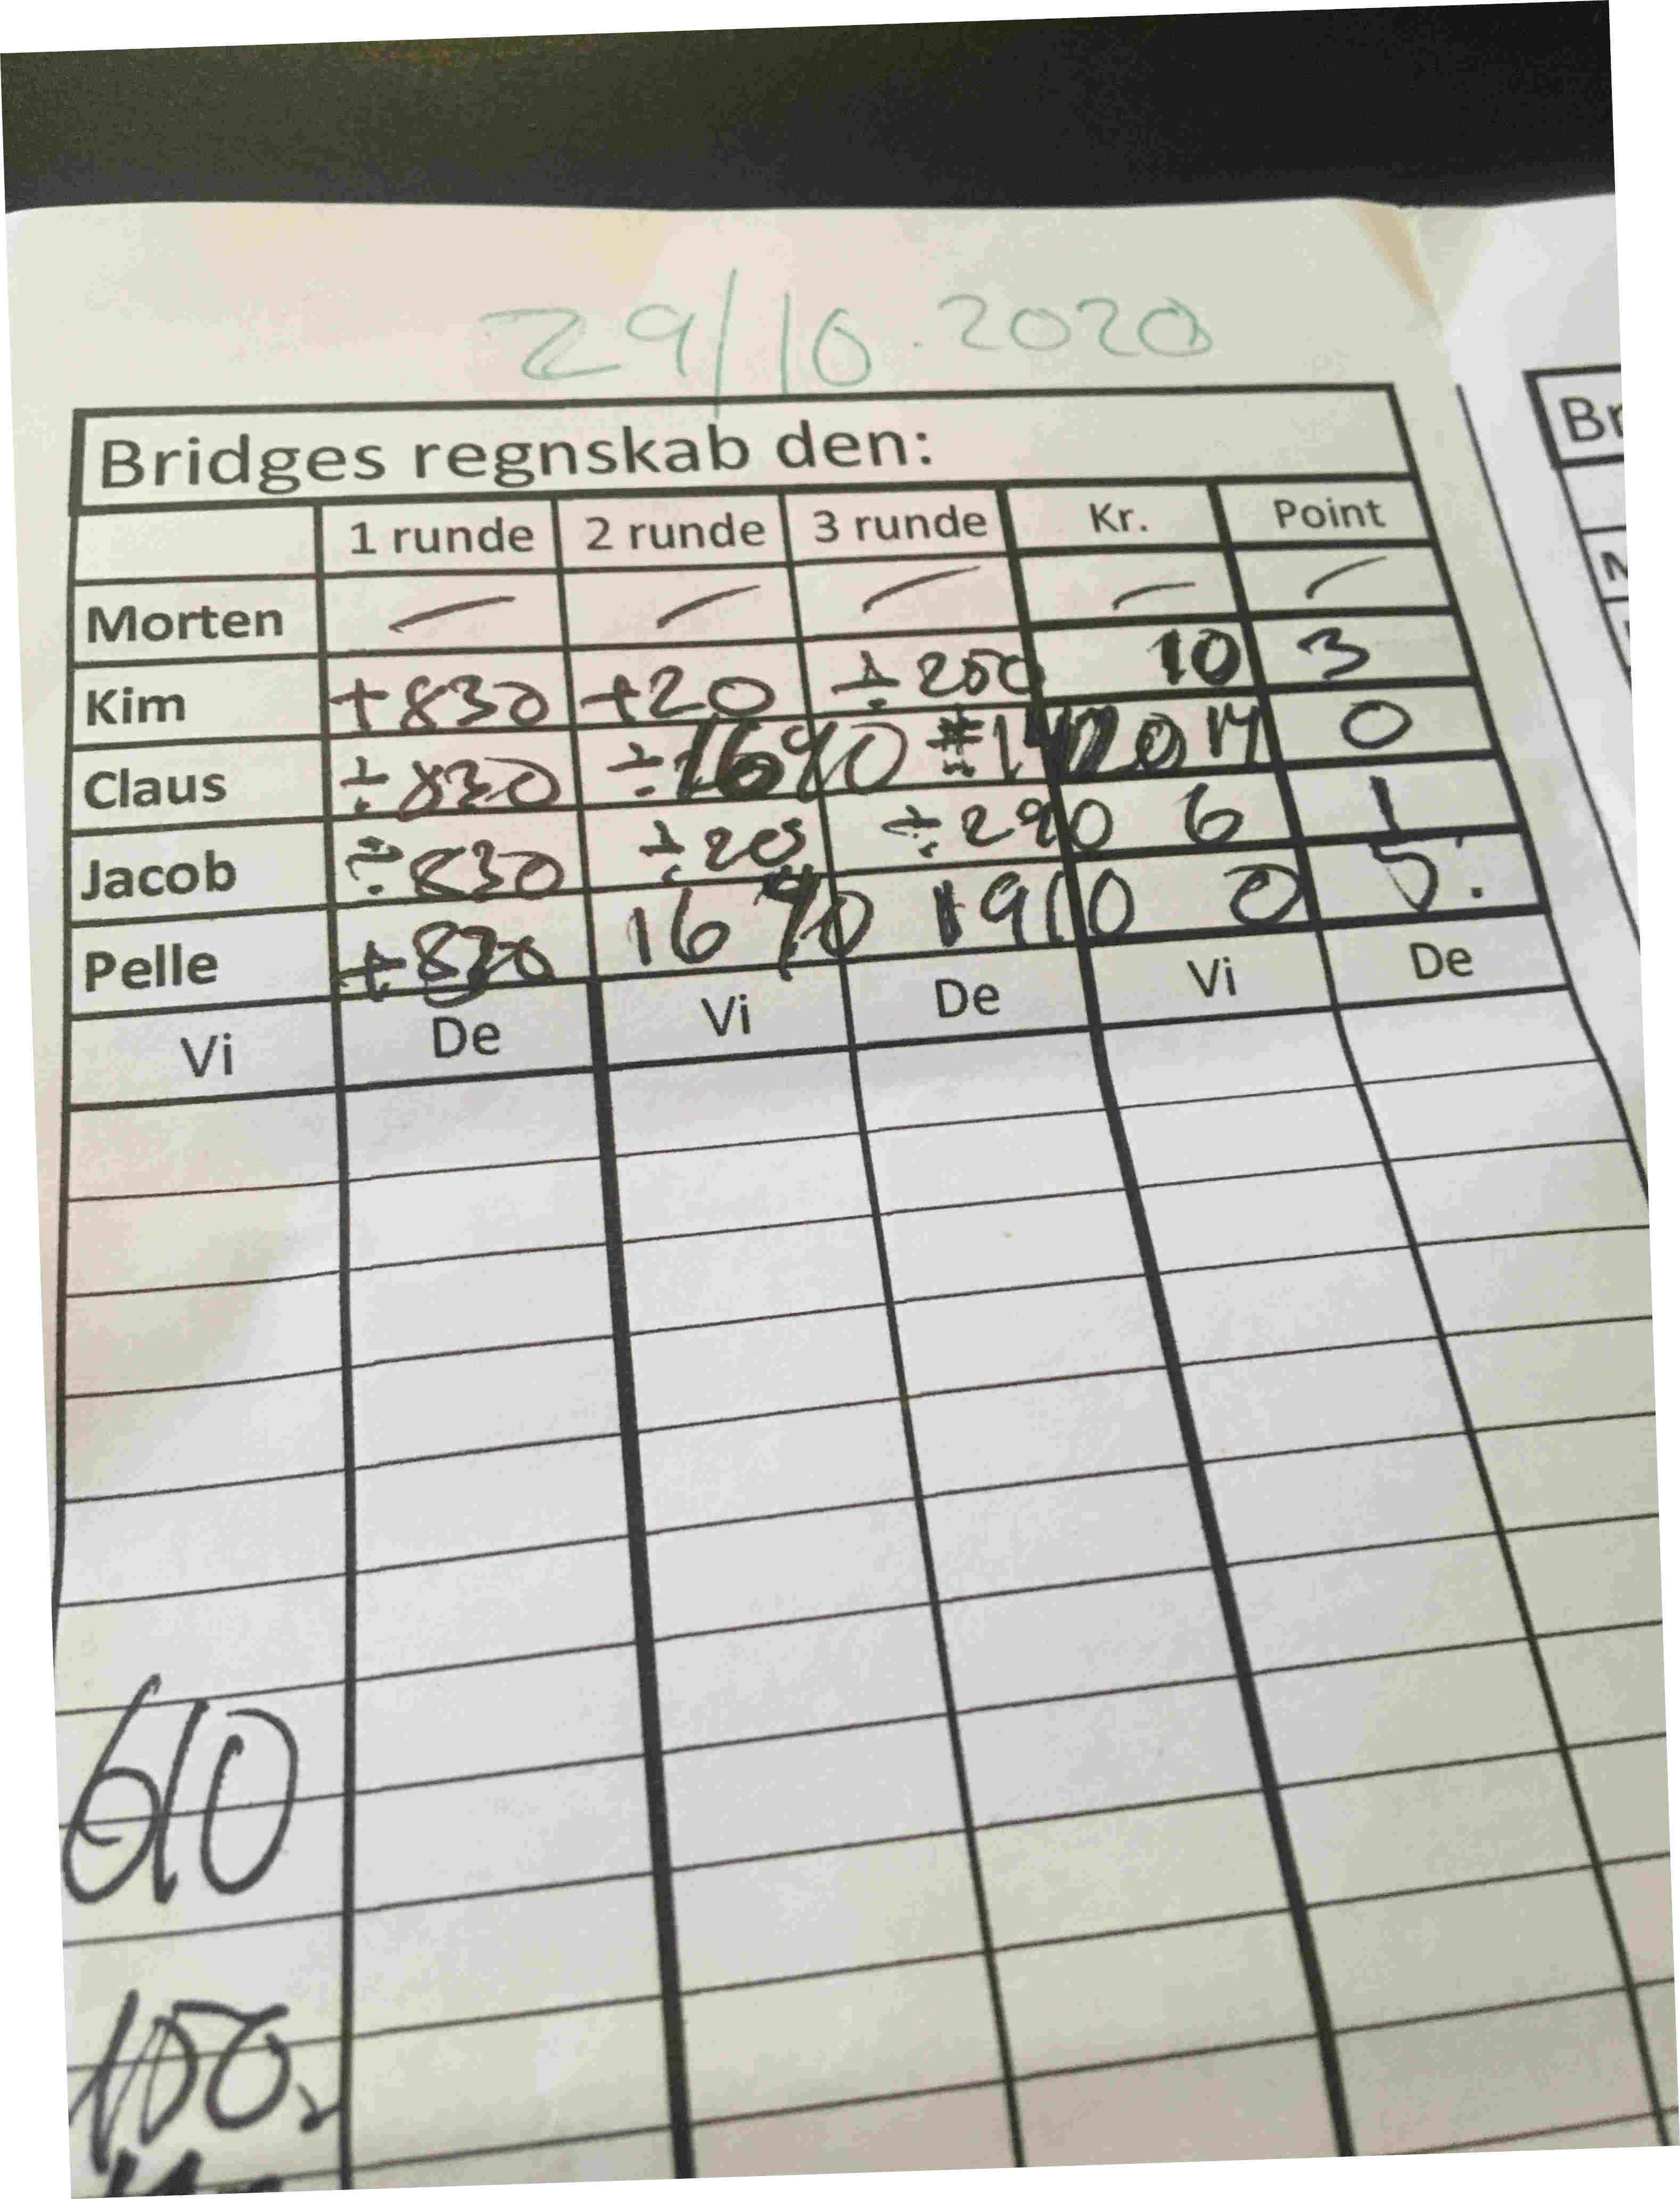 29/10.2020
Bridges regnskab den:
1 runde 2 runde 3 runde Kr. Point
Morten — — — — —
Kim +830 +20 ÷200 10 3
Claus ÷830 ÷1690 14 0
Jacob ÷830 ÷20 ÷290 6 1
Pelle +830 1690 1910 0 5.
Vi De Vi De Vi De
610
100
Br